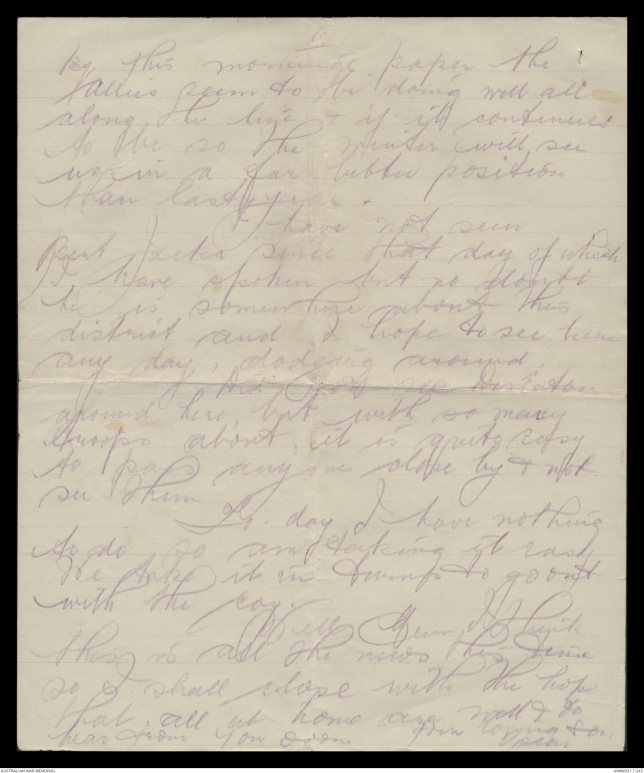 by this mornings paper the
Allies seem to be doing well all
along the line & if it continues
to be so the winter will see
us in a far better position
than last year.
I have not seen
Bert Jacka since that day of which
I have spoken but no doubt
he is somewhere about this
district and I hope to see him
any day, dodging around
Did not see
around here, but with so many
troops about, it is quite easy
to pass anyone close by & not
see them
To-day I have nothing
to do so am taking it easy
We take it in turns to go out
with the coy.
Well Mum I think
this is all the news this time
so I shall close with the hope
that all at home are well & to
hear from you soon. Your loving son
AUSTRALIAN WAR MEMORIAL